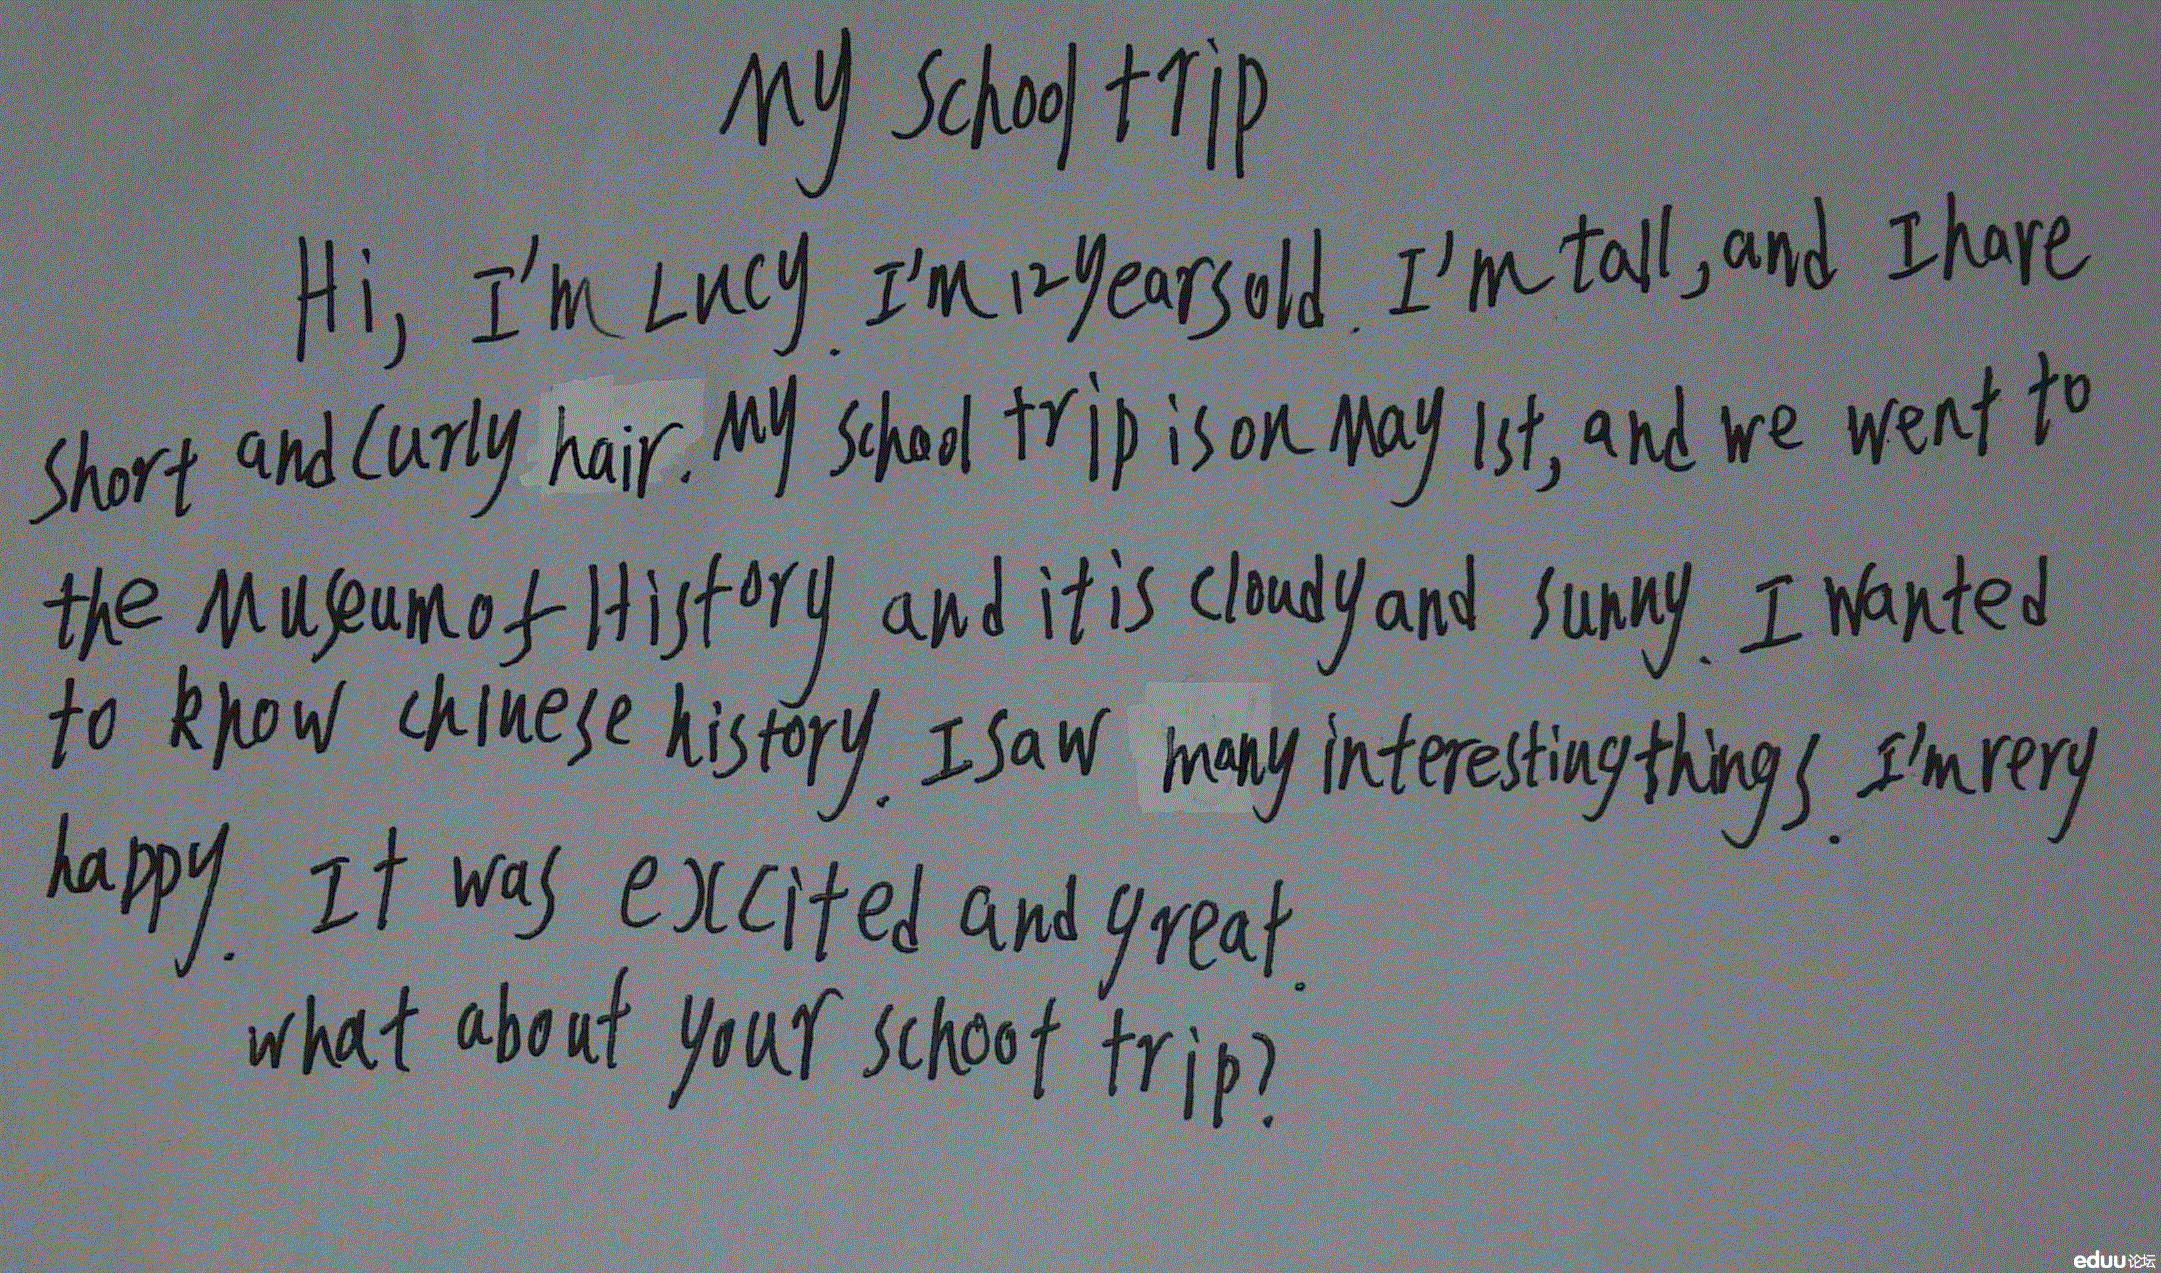 My school trip
Hi, I'm Lucy. I'm 12 years old. I'm tall, and I have
short and curly hair. My school trip is on May 1st, and we went to
the Museum of History and it is cloudy and sunny. I wanted
to know chinese history. I saw many interesting things. I'm very
happy. It was excited and great.
what about your school trip?
eduu论坛